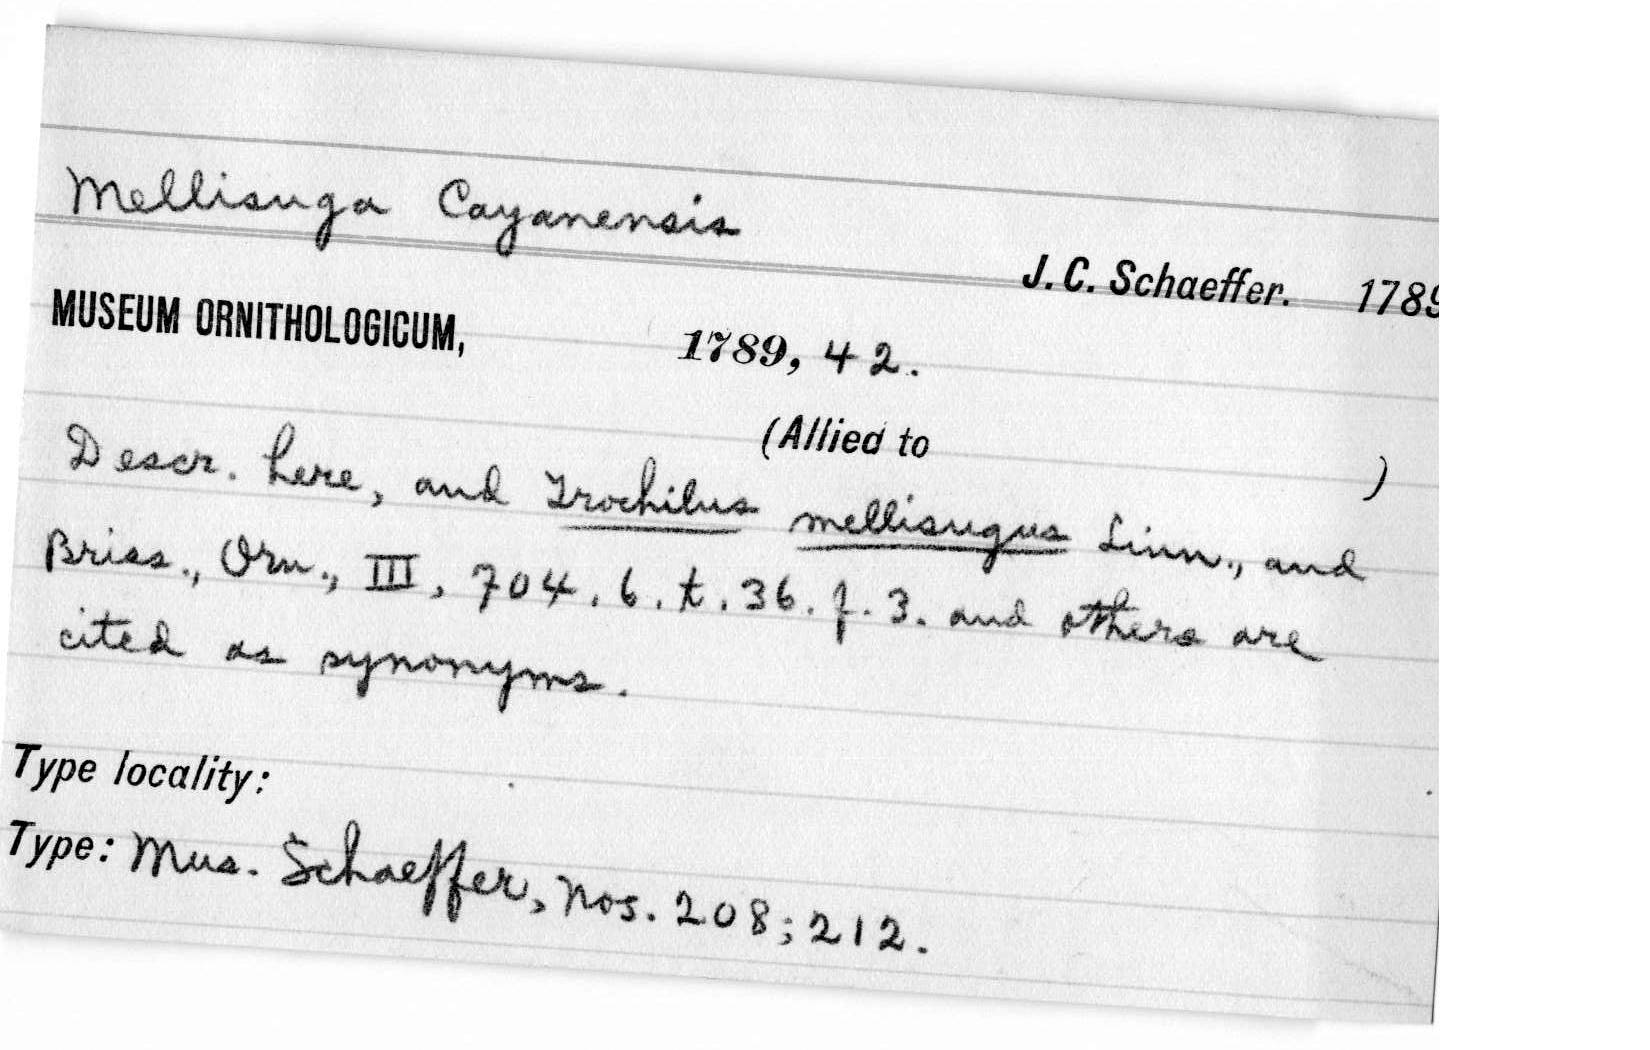 Mellisuga Cayanensis
J. C. Schaeffer. 1789
MUSEUM ORNITHOLOGICUM, 1789, 42.
(Allied to )
Descr. here, and Trochilus mellisugus Linn., and
Briss., Orn., III, 704. 6. t. 36. f. 3. and others are
cited as synonyms.
Type locality:
Type: Mus. Schaeffer, Nos. 208; 212.